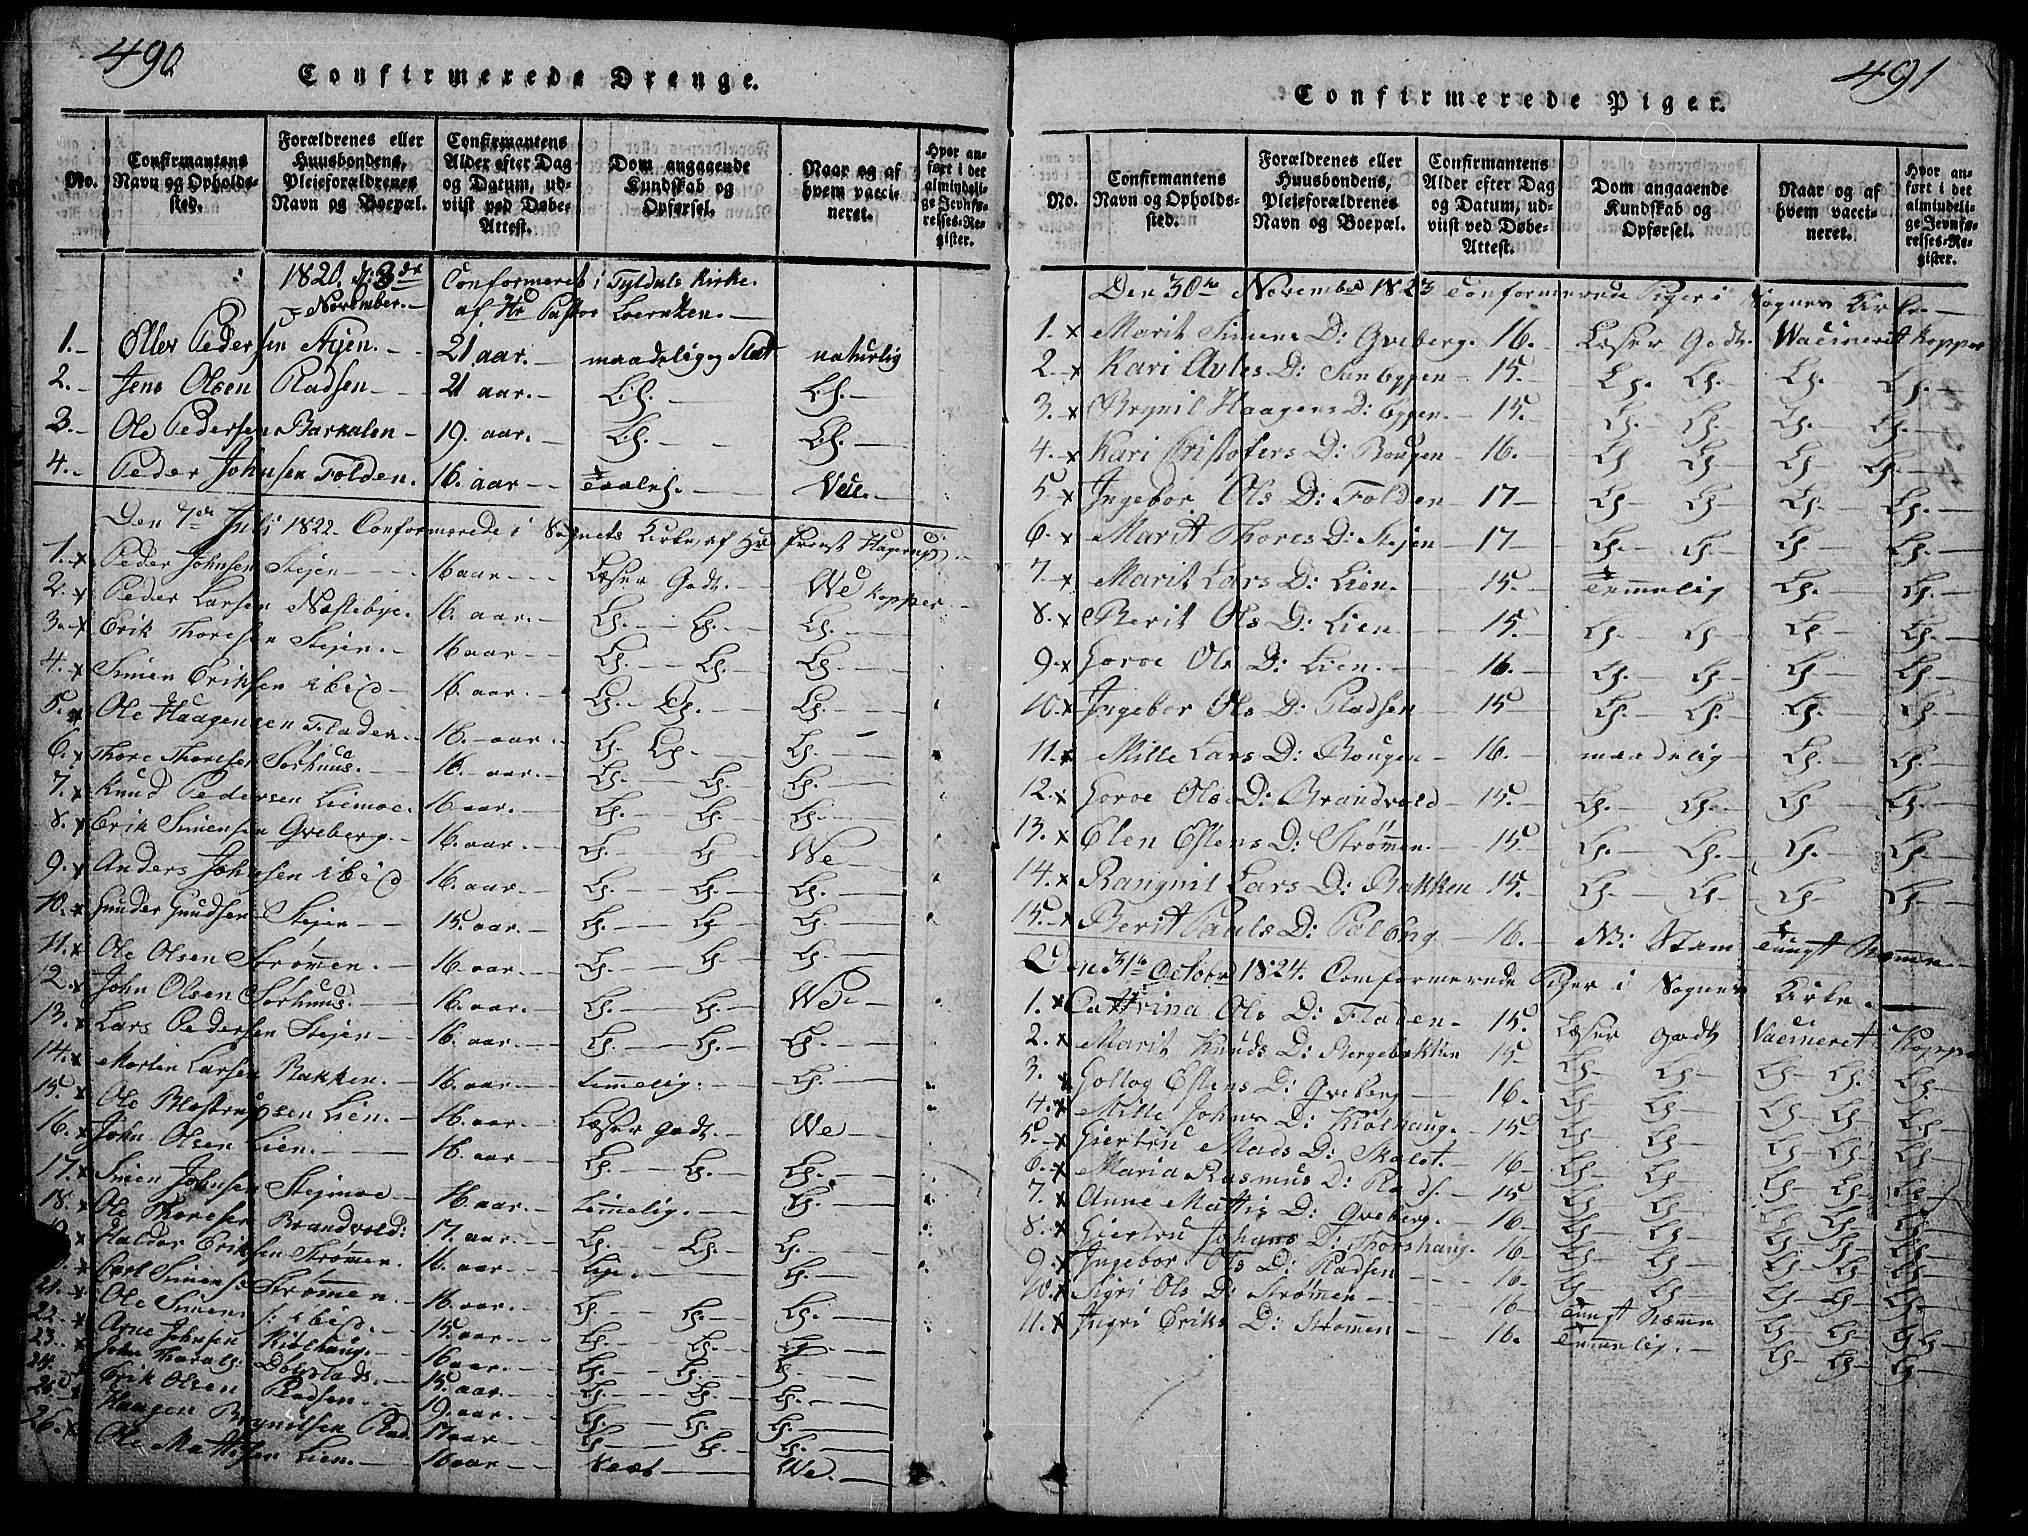 490
Confirmerede Drenge.
No.
Confirmantens Navn og Opholds-sted.
Forældrenes eller Huusbondens, Plejeforældrenes Navn og Boepæl.
Confirmantens Alder efter Dag og Datum, ud-viist ved Døbe-Attest.
Dom angaaende Kundskab og Opførsel.
Naar og af hvem vacci-neret.
Hvor an-ført i det almindeli-ge Jevnfø-relses-Re-gister.
1820. d: 3de November. Conformeret i Tyldals Kirke.
af Hr Pastor
1. Pedersen 21 aar. maadelig naturlig
2. Jens Olsen Pladsen 21 aar. Do. Do.
3. Ole Pedersen Barkalen 19. aar. Do. Do.
4. Peder Johnsen Folden. 16. aar Vac.
Den 7de Juli 1822. Conformerede i Sognets Kirke af Hr Provst Hagerup.
1. x Peder Johnsen Stejen 16 aar Læser Godt. We Kopper
2. x Peder Larsen Næstebye. 16. aar. Do. Do. Do.
3. x Erik Thoresen Stejen. 16 aar Do. Do. Do.
4. x Simen Eriksen ibid 16. aar. Do. Do. Do.
5. x Ole Haagensen Fladen. 16. aar. Do. Do. Do.
6. x Thore Thoresen Sorhuus. 16. aar. Do. Do. Do.
7. x Knud Pedersen Liemoe. 16 aar. Do. Do. Do.
8. x Erik Simensen Gveberg. 16. aar. Do. Do We
9. x Anders Johnsen ibid 16. aar. Do. Do. Do.
10. x Gunder Gundsen Stejen 15. aar. Do. Do. Do.
11. x Ole Olsen Strømen. 16. aar. Do. Do Do.
12. x John Olsen Sorhuus. 16. aar. Do. Do. We
13. x Lars Pedersen Stejen 16. aar. Do. Do. Do.
14. x Morten Larsen Bakken. 16. aar. Timelig. Do.
15. x Ole Lien. 16. aar. Læser godt. We
16. x John Olsen Lien. 16. aar Do. Do. Do.
17. x Simen Johnsen Stejmoe 16 aar. Timelig. Do.
18. x Ole Thoresen Brandvold: 17. aar. Do. Do. Do.
x Halder Eriksen Strømen. 16. aar. Do.
x Simens: Strømen. 16. aar. Do. Do. Do.
21. x Ole Simens: ibid. 15. aar. Do. Do. Do.
22. x Arne Johnsen Kiølhaug. 16 aar. Do. Do. Do.
23. x John 15. aar. Do. Do. Do.
24. Erik Olsen Pladsen. 19. aar. Do. Do. Do.
25. x Haagen Brynilsen Plad. 17 aar Do. Do. Do.
26. x Ole Mattisen Lien. 16 aar We.
491
Confirmerede Piger.
No.
Confirmantens Navn og Opholds-sted.
Forældrenes eller Huusbondens, Plejeforældrenes Navn og Boepæl.
Confirmantens Alder efter Dag og Datum, ud-viist ved Døbe-Attest.
Dom angaaende Kundskab og Opførsel.
Naar og af hvem vacci-neret.
Hvor an-ført i det almindeli-ge Jevnfø-relses-Re-gister.
Den 30te November 1823 Conformerede Piger i Sognes Kirke.
1. x Marit Simens D: Gveberg. 16. Læser Godt. Vacineret Kopper
2. x Kari D: 15. Do. Do. Do. Do.
3. x Brynil Haagens D: Eggen. 15. Do. Do. Do. Do.
4. x Kari Cristofers D: Bougen 16. Do Do. Do. Do.
5. x Ingebor Ols D: Folden 17 Do Do Do. Do.
6. x Marit Thores D: Stejen 17 Do. Do. Do. Do.
7. x Marit Lars D: Lien. 15. Temmelig Do. Do.
8. x Berit Ols D: Lien 15. Do. Do. Do. Do.
9. x Goroe Ols D: Lien. 16. Do. Do. Do. Do.
10. x Ingebor Ols D: Pladsen 15 Do. Do. Do. Do.
11. x Mille Lars D: Bougen 16. maadelig Do. Do.
12. x Goroe Ols D: Brandvold 15. Do. Do. Do Do.
13. x Elen Estens D: Strømen. 15. Do. Do. Do. Do.
14. x Rangnil Lars D: Bakken 15. Do Do. Do Do.
15. x Berit Pauls D: 16. Tungt Næmme
Den 31te October 1824. Comformerede Piger i Sognes Kirke.
1. x Cathrina Ols D: Fladen 15. Læser godt Vacineret Kopper
2. x Marit Knuds D: 15 Do Do Do Do Do
3. x Gollog Estens D: Gveberg 16. Do Do Do Do Do
4. x Mille Johns D: Kiølhaug. 15 Do Do Do Do Do
5. x Giertru Mads D: 16 Do Do Do Do Do
6. x Maria Rasmus D: Plads. 15 Do Do Do Do Do
7. x Anne Mattis D: Gveberg. 16 Do Do Do Do Do
8. x Giertru Johans D: Thorshaug. 16 Do Do Do Do Do
9. x Ingebor Ols D: Pladsen 16 Do Do Do Do Do
10. x Sigri Ols D: Strømen 16 Tungt Næmme Do Do Do
11. x Ingri Eriks D: Strømen 16. Temmelig. Do Do Do